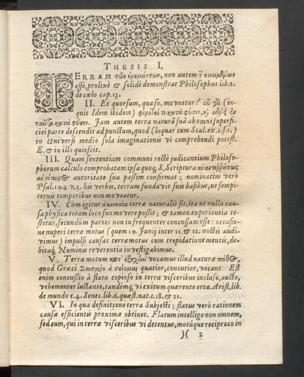 THESIS I.
TERRAM τῶν
esse, prolixè & solidè demonstrat Philosophus lib. 2.
de cœlo cap. 13.
II. Et quorsum, quæso, moveatur?
quit Idem ibidem)
Jam autem terra naturâ suâ ab omni superfi-
ciei parte descendit ad punctum, quod (loquar cum Scal. ex.
in universi medio sola imaginationis vi comprehendi potest.
E. & in illo quiescit.
III. Quam sententiam communi rectè judicantium Philoso-
phorum calculo comprobatam ipsa quoq; S. Scriptura
autoritate sua passim confirmat; nominatim verò
Psal. 104. v. 5. his verbis, terram fundavit suis basibus, ut sempi-
ternis temporibus non moveatur.
IV. Cum igitur quies terræ naturalis sit, ita ut nulla cau-
sa physica totam loco suo movere possit; & tamen experientia te-
stetur, secundum partes non infrequenter concussam esse: occasio-
ne nuperi terræ motus (quem 10. Junij inter 11. & 12. noctis audi-
vimus) impulsi causas terræmotus cum trepidatione mentis, de-
bitaq; Numinis reverentia investigabimus.
V. Terræ motum κατ' ἐξοχὴν vocamus illud naturæ πάθος,
quod Græci Σεισμὸν à σείειν quatior, concutior, vocant. Est
enim concussio à flatu copioso in terræ visceribus incluso, actio,
vehementer luctante, tandemq; vi exitum quærente orta. Arist. lib.
de mundo c. 4. Senec. lib. 6. quæst. nat. c. 18. & 21.
VI. In qua definitione terra Subjecti; flatus verò rationem
causæ efficientis proximæ obtinet. Flatum intellige non omnem,
sed eum, qui in terræ visceribus vi detentus, motuque reciproco in
)( 2